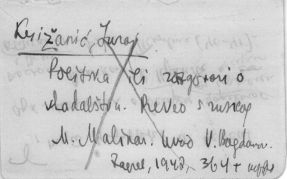 Križanić, Juraj
Politika ili razgovori o
vladalištvu. Preveo s ruskog
M. Malinar. Uvod V. Bogdanov.
Zagreb, 1948, 364 +